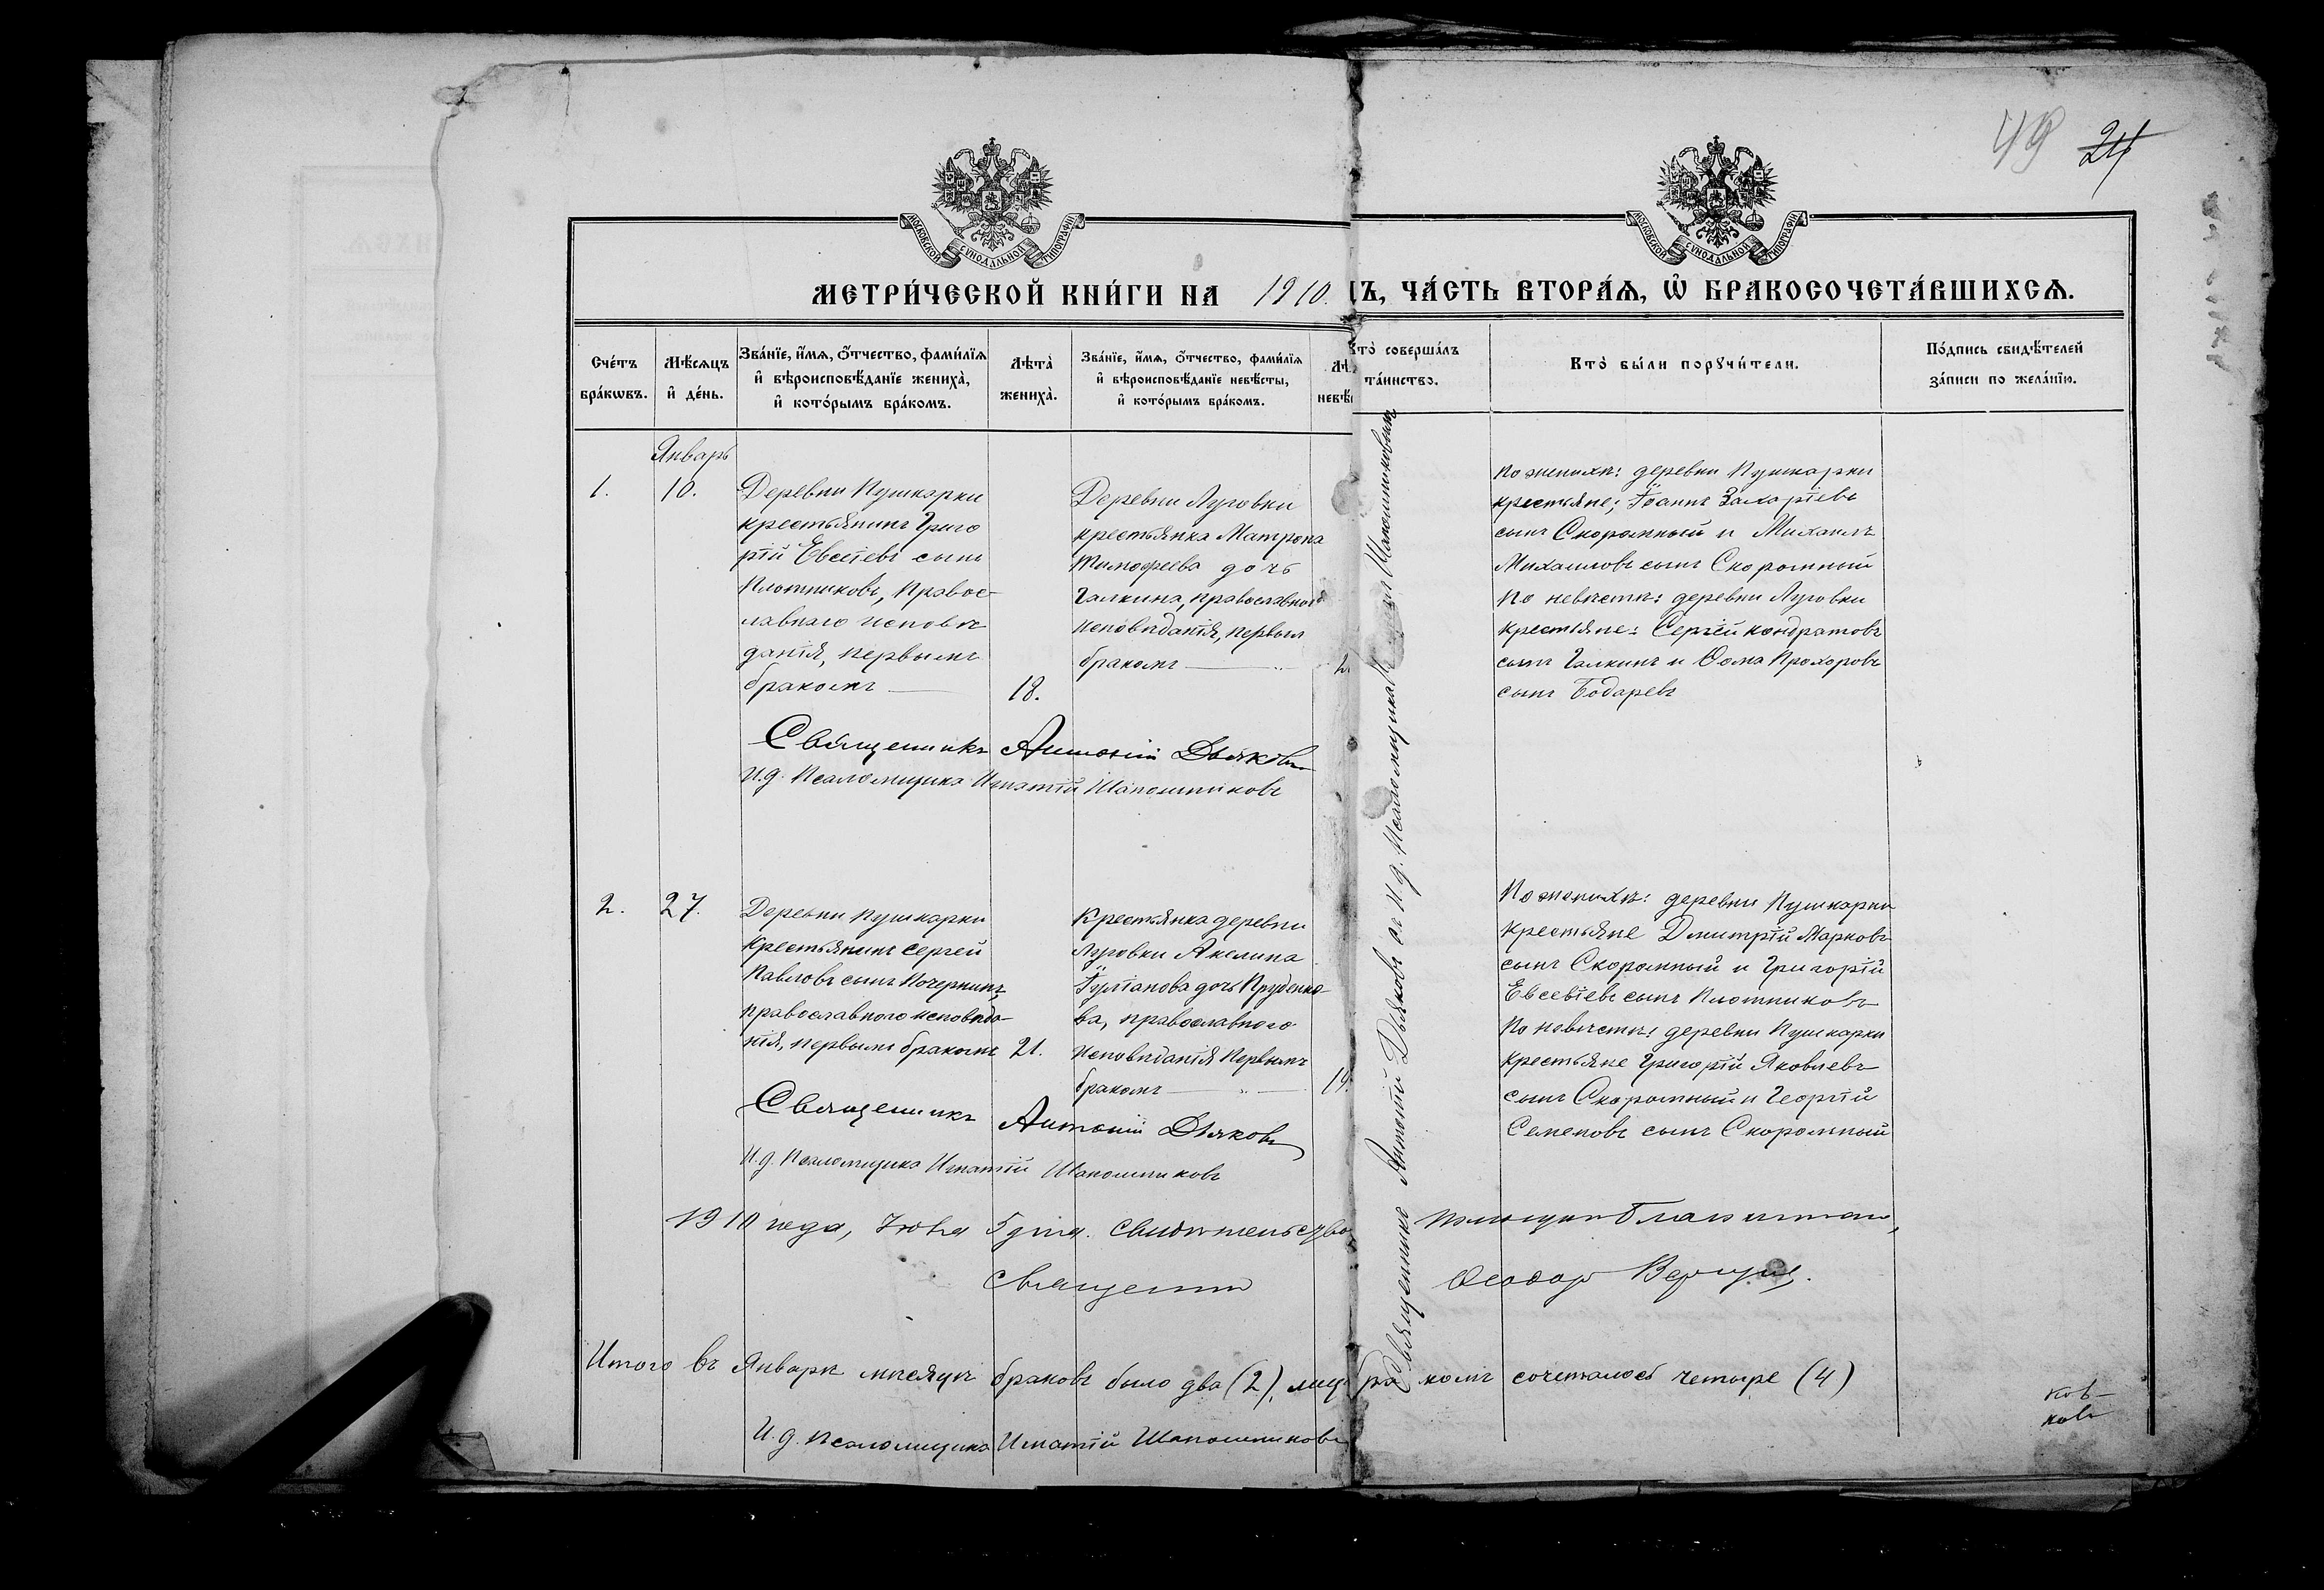 49 24
МОСКОВСКОЙ СѴНОДАЛЬНОЙ ТИПОГРАФІИ
МОСКОВСКОЙ СѴНОДАЛЬНОЙ ТИПОГРАФІИ
МЕТРИ́ЧЕСКОЙ КНИ́ГИ НА 1910.
Ъ, ЧА́СТЬ ВТОРА́Ѧ, Ѡ҆ БРАКОСОЧЕТА́ВШИХСѦ.
Сче́тъ бра́кѡвъ.
Мѣ́сѧцъ и҆ де́нь.
Зва́нїе, и҆́мѧ, ѻ҆́тчество, фами́лїѧ и҆ вѣроисповѣ́данїе жениха̀, и҆ кото́рымъ бра́комъ.
Лѣта̀ жениха̀.
Зва́нїе, и҆́мѧ, ѻ҆́тчество, фами́лїѧ и҆ вѣроисповѣ́данїе невѣ́сты, и҆ кото́рымъ бра́комъ.
Лѣ невѣ
Кто̀ соверша́лъ та́инство.
Кто̀ бы́ли порꙋчи́тели.
По́дпись свидѣ́телей за́писи по жела́нїю.
Январь
1.
10.
Деревни Пушкарки
крестьянинъ Григо
рій Евсѣевъ сынъ
Плотниковъ, Правос-
лавнаго исповѣ
данія, первымъ
бракомъ
18.
Деревни Луговки
крестьянка Матрона
Тимофеева дочь
Галкина, православнаго
исповѣданія, первым
бракомъ
2
По женихѣ: деревни Пушкарки
крестьяне; Іоаннъ Захаріевъ
сынъ Скоромный и Михаилъ
Михаиловъ сынъ Скоромный
По невѣстѣ: деревни Луговки
крестьяне: Сергій Кондратовъ
сынъ Галкинъ и Ѳома Прохоровъ
сынъ Бодаревъ
Священникъ Антоній Дьяковъ
И.д. Псаломщика Игнатій Шапошниковъ
2.
27.
Деревни Пушкарки
Крестьянинъ Сергей
Павловъ сынъ Почернинъ,
православнаго исповѣда-
нія, первымъ бракомъ
21.
Крестьянка деревни
Луговки Акелина
Іуліанова дочь Пруденко-
ва, православнаго
исповѣданія Первымъ
бракомъ
19.
По женихѣ: деревни Пушкарки
крестьяне Дмитрій Марковъ
сынъ Скоромный и Григорій
Евсевіевъ сынъ Плотниковъ
По невѣстѣ: деревни Пушкарки
крестьяне Григорій Яковлевъ
сынъ Скоромный и Георгій
Семеновъ сынъ Скоромный
Священникъ Антоній Дьяковъ
И.д. Псаломщика Игнатій Шапошниковъ
Священникъ Антоній Дьяковъ съ И.д. Псаломщика Шапошниковымъ
1910 года, Іюня 5 дня. Свидѣтельство
Священник Ѳеодор
Итого въ Январѣ мѣсяцѣ браковъ было два (2), лиц бра комъ сочеталось четыре (4)
И.д. псаломщика Игнатій Шапошниковъ
ковъ
ковъ